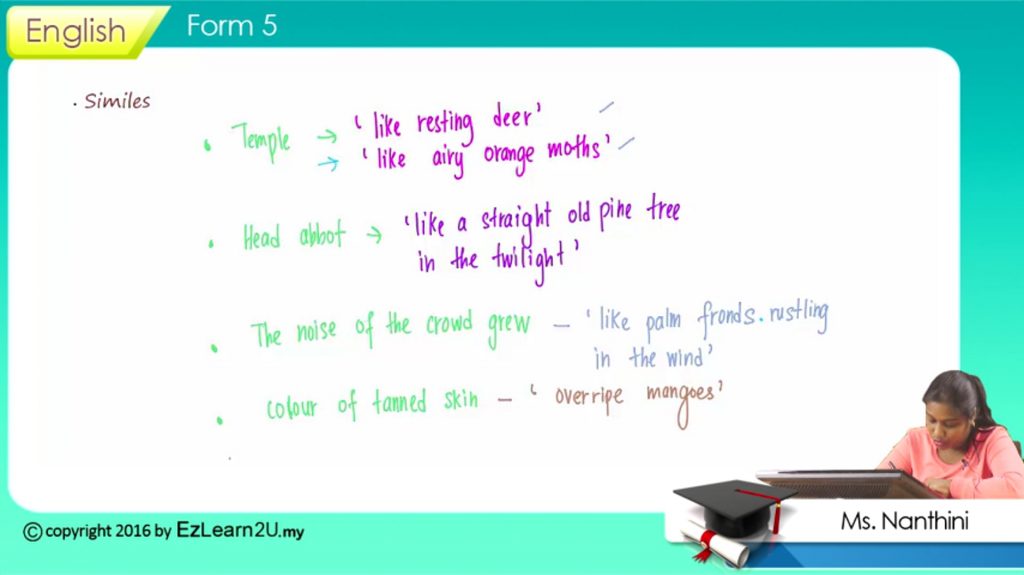 English Form 5
· Similes
• Temple → 'like resting deer'
→ 'like airy orange moths'
• Head abbot → 'like a straight old pine tree
in the twilight'
• The noise of the crowd grew – 'like palm fronds. rustling
in the wind'
• colour of tanned skin – 'overripe mangoes'
Ms. Nanthini
© copyright 2016 by EzLearn2U.my